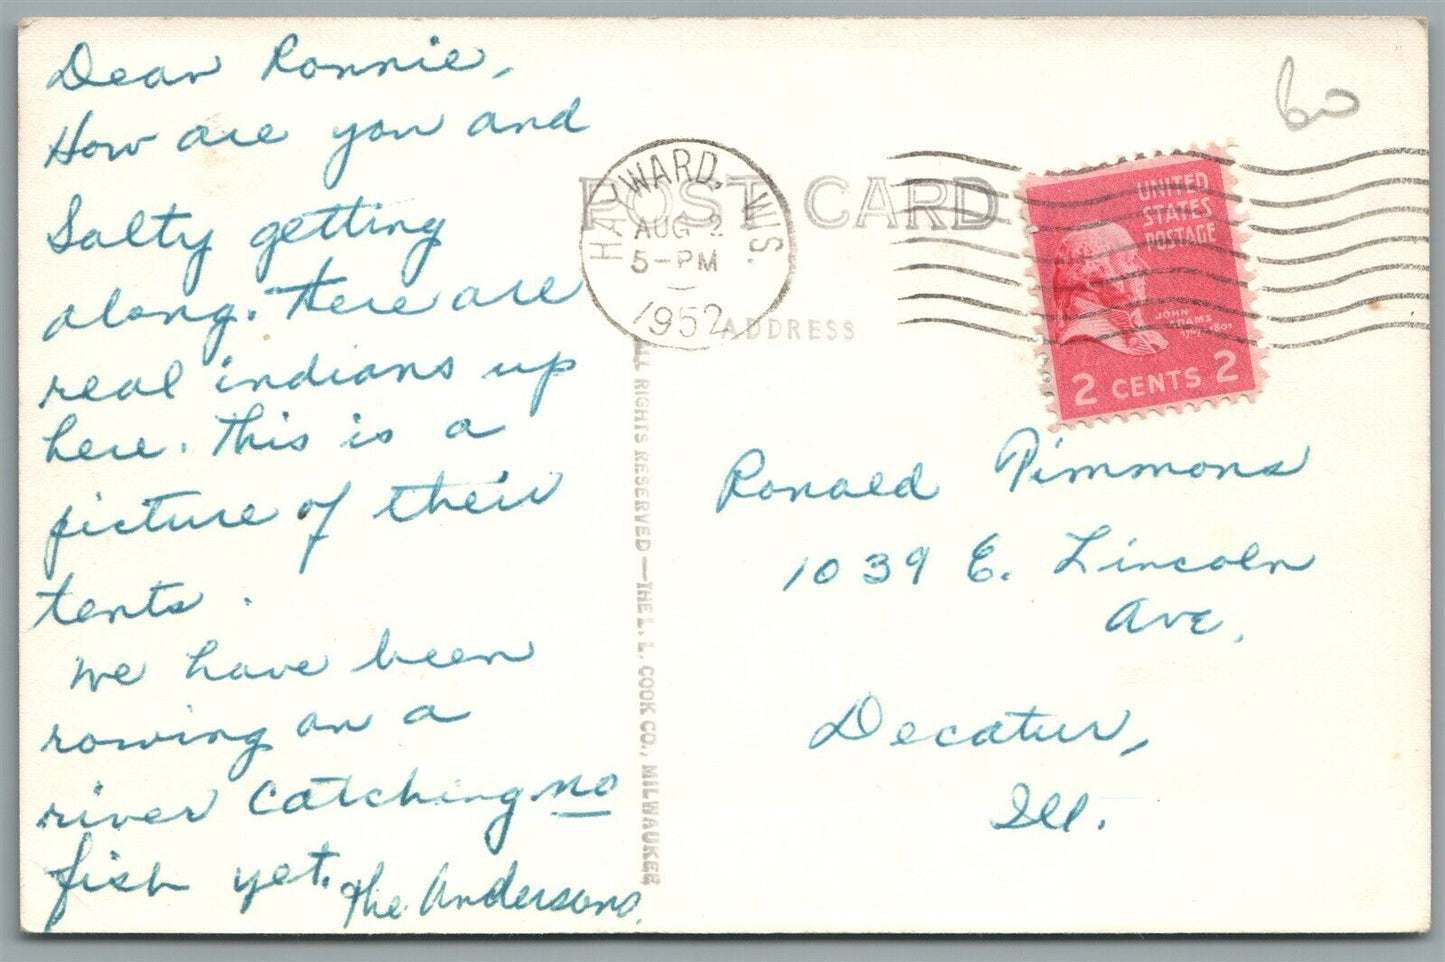 Dear Ronnie,
How are you and
Salty getting
along. There are
real indians up
here. This is a
picture of their
tents.
We have been
rowing on a
river catching no
fish yet.
The Andersons.
60
POST CARD
HAYWARD, WIS.
AUG 2
5-PM
1952
ADDRESS
UNITED
STATES
POSTAGE
JOHN
ADAMS
2 CENTS 2
ALL RIGHTS RESERVED—THE L. L. COOK CO., MILWAUKEE
Ronald Timmons
1039 E. Lincoln
Ave.
Decatur,
Ill.